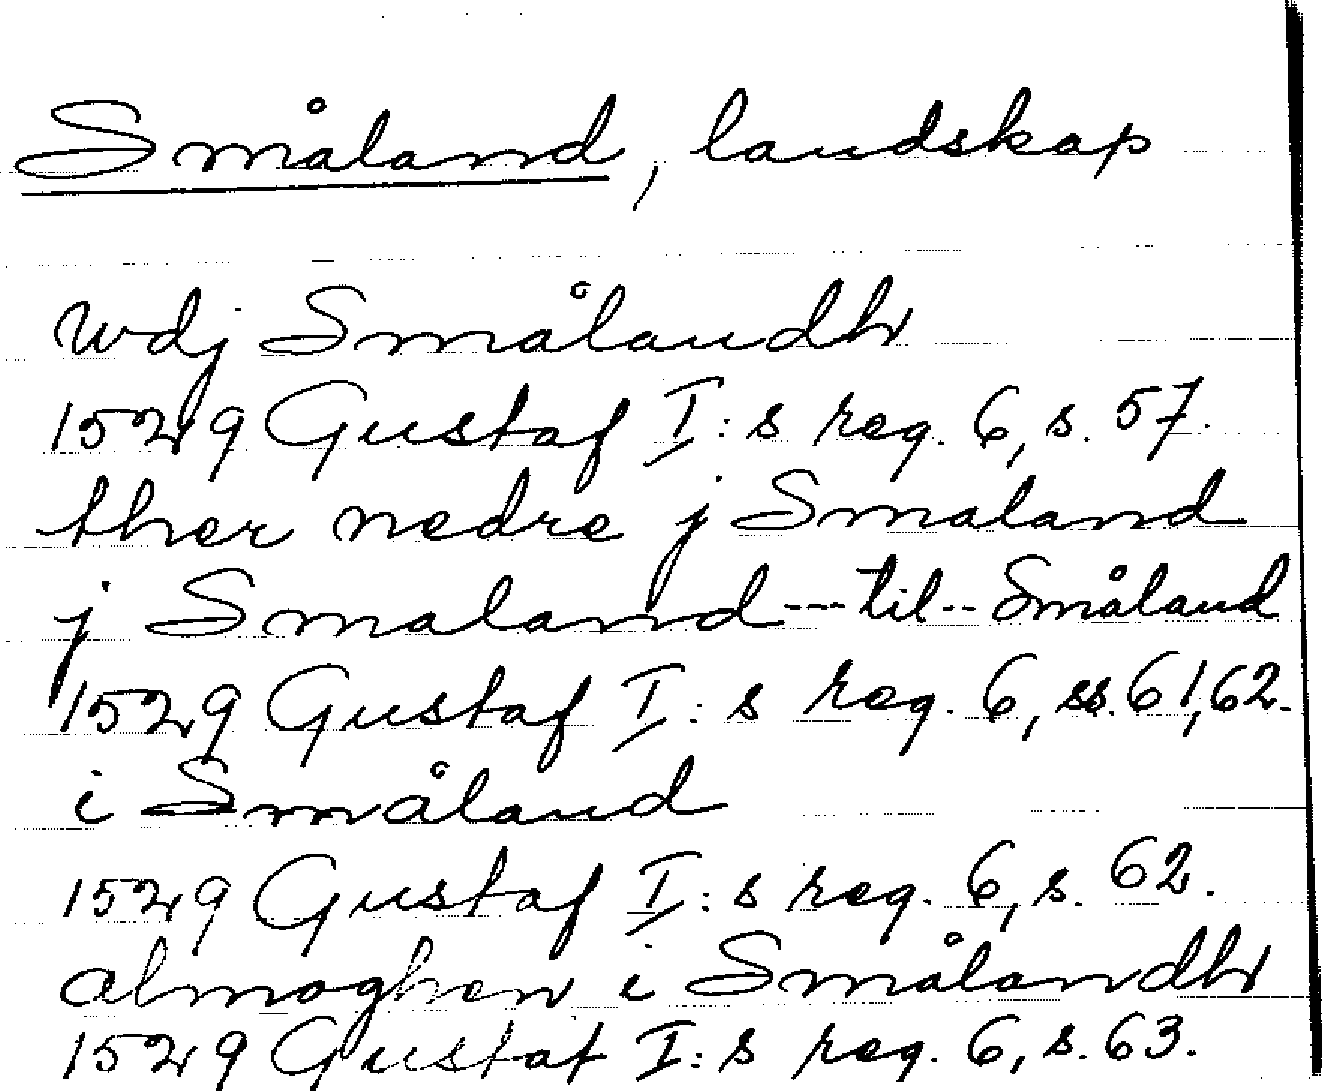 Småland, landskap
wdj Smålandh
1529 Gustaf I:s reg. 6, s. 57.
ther nedre j Smaland
j Smaland --- til -- Småland
1529 Gustaf I:s reg. 6, ss. 61, 62.
i Småland
1529 Gustaf I:s reg. 6, s. 62.
almoghen i Smålandh
1529 Gustaf I:s reg. 6, s. 63.